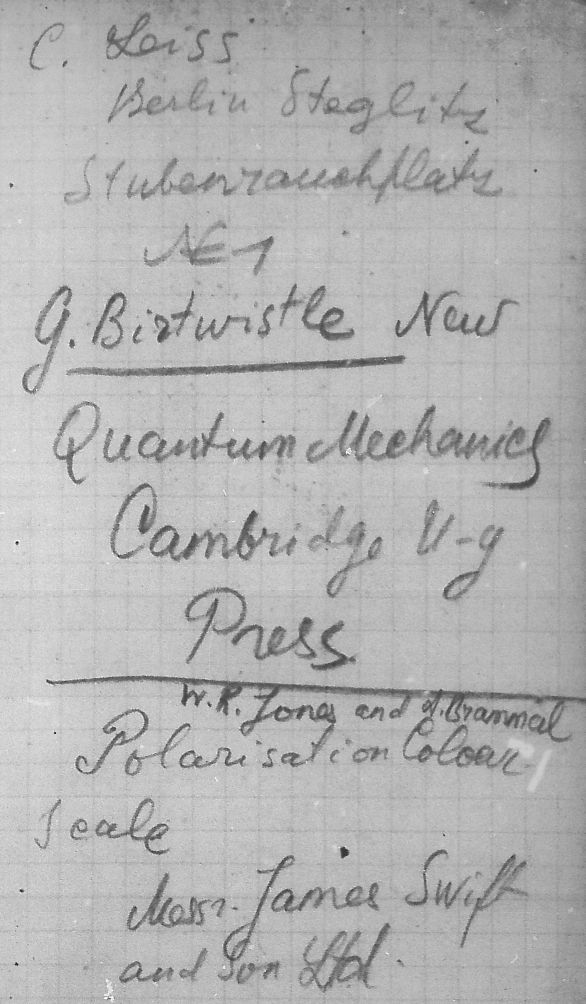 C. Leiss
Berlin Steglitz
Stubenrauchplatz
№ 1
G. Birtwistle New
Quantum Mechanics
Cambridge U-y
Press
W. R. Jones and A. Brammal
Polarisation Colour
Scale
Messr. James Swift
and Son Ltd.